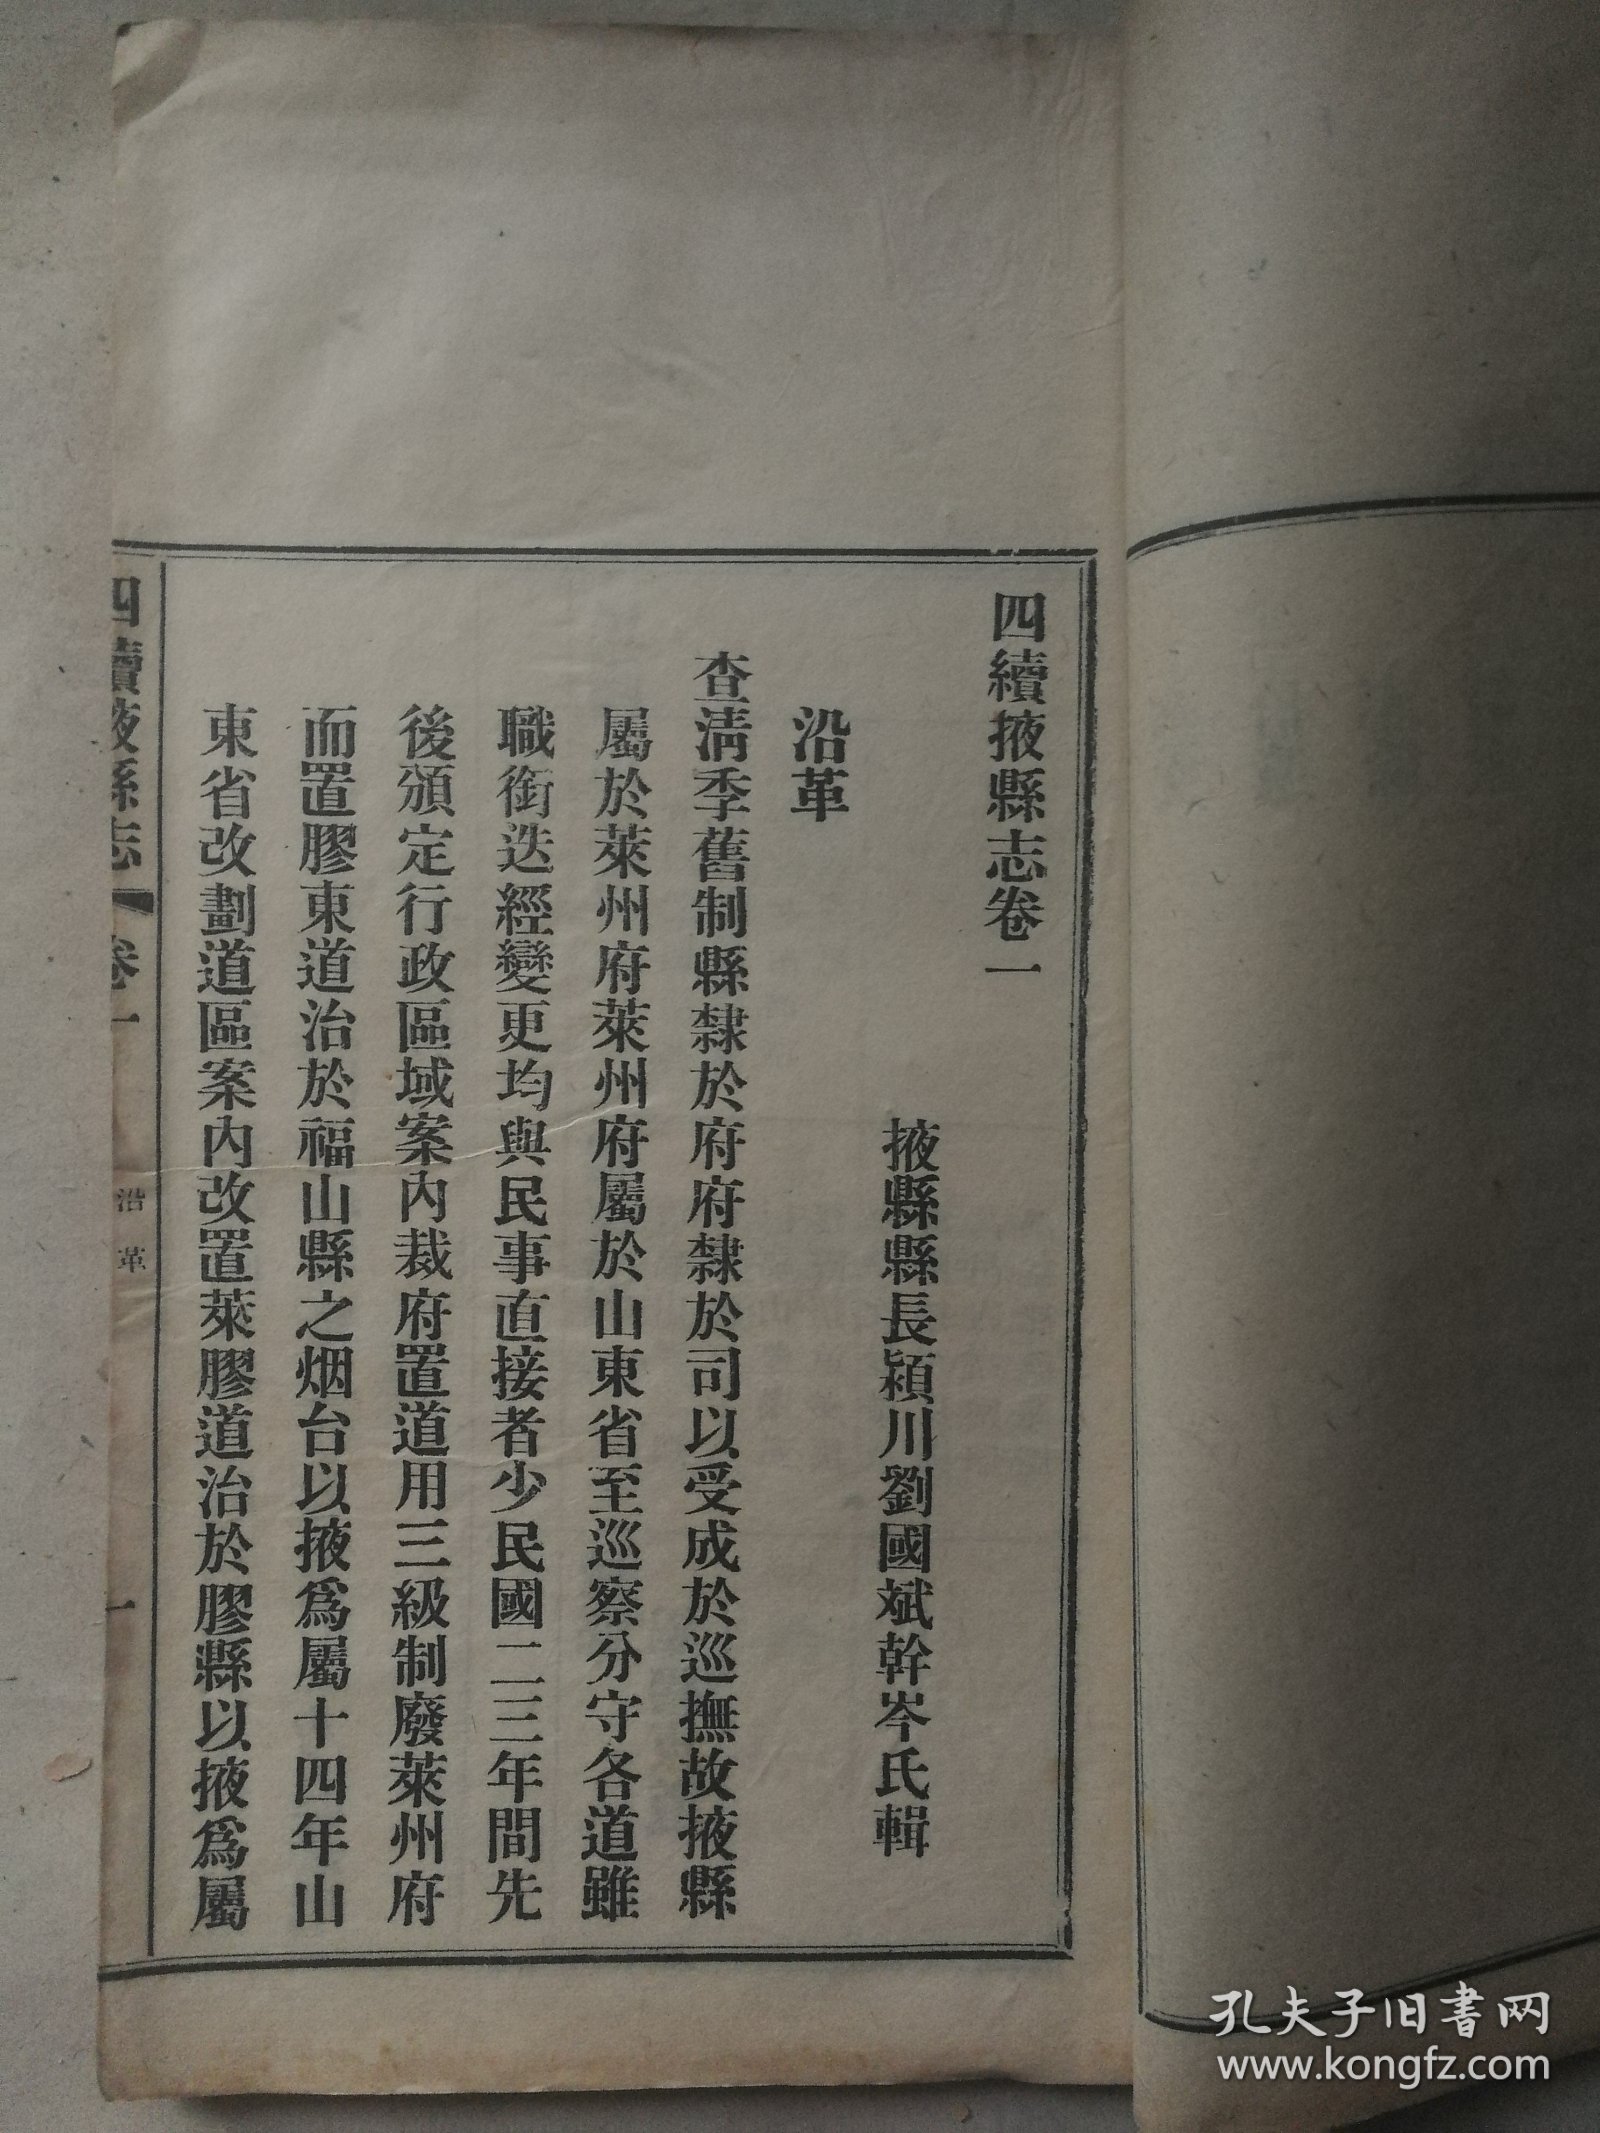 四續掖縣志卷一
掖縣縣長潁川劉國斌幹岑氏輯
沿革
查清季舊制縣隸於府府隸於司以受成於巡撫故掖縣
屬於萊州府萊州府屬於山東省至巡察分守各道雖
職銜迭經變更均與民事直接者少民國二三年間先
後頒定行政區域案內裁府置道用三級制廢萊州府
而置膠東道治於福山縣之烟台以掖爲屬十四年山
東省改劃道區案內改置萊膠道治於膠縣以掖爲屬
四續掖縣志 卷一 沿革 一
孔夫子旧书网
www.kongfz.com